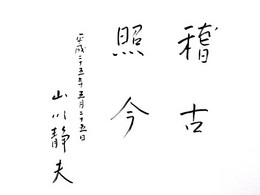 稽古
照今
平成二十五年五月二十五日
山川静夫